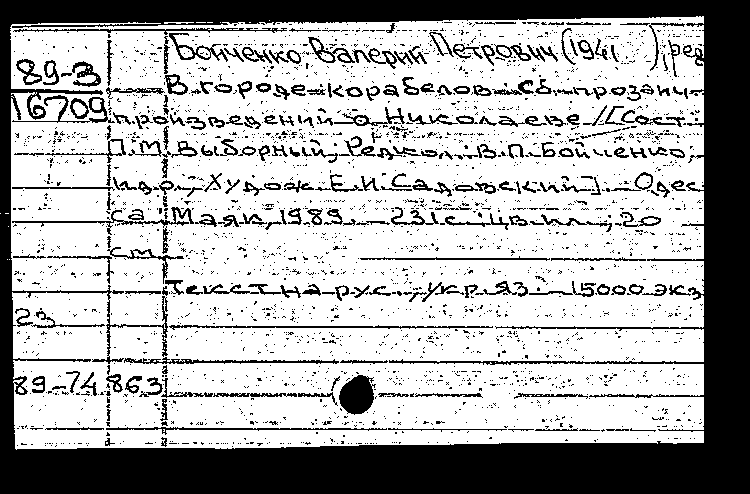 Бойченко, Валерий Петрович (1941 ), ред
89-3
В городе корабелов: Сб. прозаич.
16709
произведений о Николаеве / [Сост.:
П.М. Выборный; Редкол.: В.П. Бойченко,
и др.; Худож. Е.И. Садовский]. - Одес
са: Маяк, 1989. - 231 с.: цв. ил.; 20
см.
Текст на рус., укр. яз. - 15000 экз
23
89-74 863